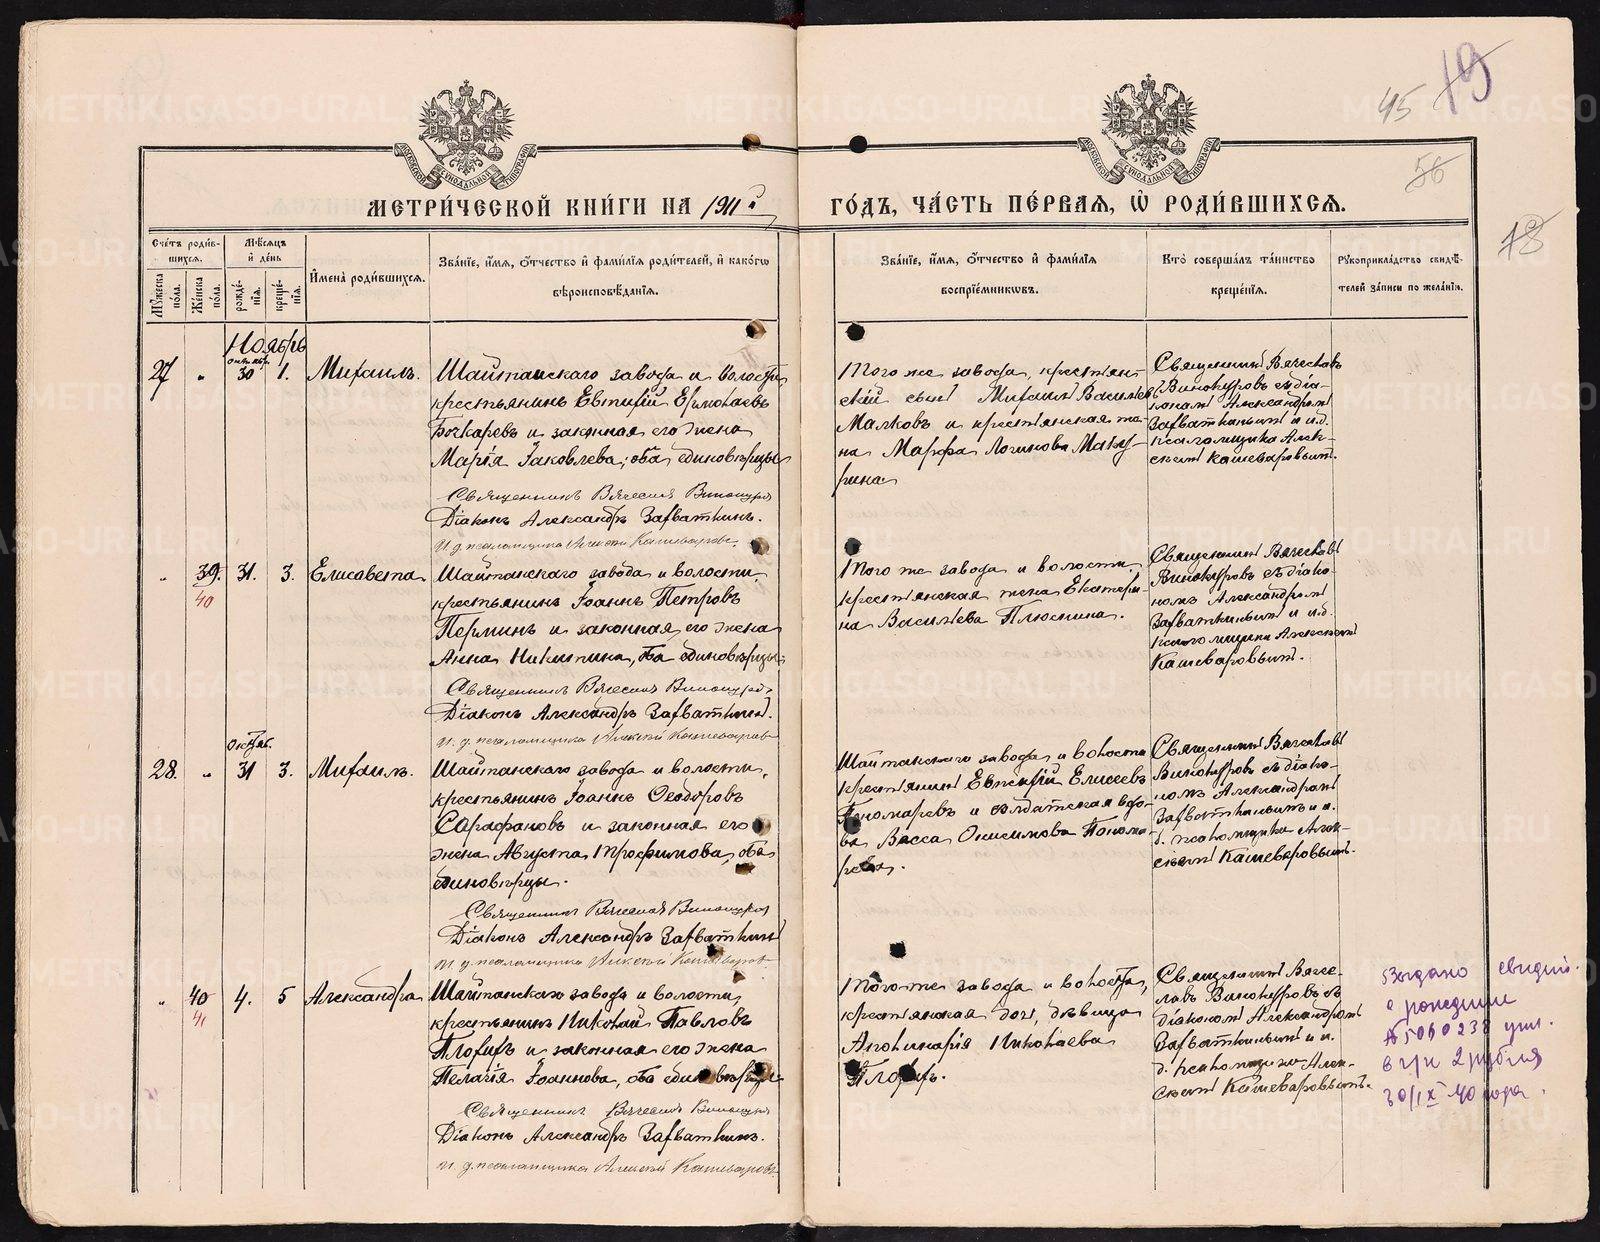 МЕТРИ́ЧЕСКОЙ КНИ́ГИ НА 1911 й ГО́ДЪ, ЧА́СТЬ ПЕ́РВАЯ, Ѡ҆ РОДИ́ВШИХСѦ.
45 19
56
18
Сче́тъ роди́в-
шихсѧ.
Мꙋ́жеска по́ла.
Же́нска по́ла.
Мѣ́сѧцъ
и҆ де́нь
рожде́-
нїѧ.
креще́-
нїѧ.
И҆мена̀ роди́вшихсѧ.
Зва́нїе, и҆́мѧ, ѻ҆́тчество и҆ фами́лїѧ роди́телей, и҆ како́гѡ
вѣроисповѣ́данїѧ.
Зва́нїе, и҆́мѧ, ѻ҆́тчество и҆ фами́лїѧ
воспрїе́мникѡвъ.
Кто̀ соверша́лъ та́инство
креще́нїѧ.
Рꙋкоприкла́дство свидѣ́-
телей за́писи по жела́нїю.
Ноябрь
27 " 30 1. Михаилъ.
Шайтанскаго завода и волости,
крестьянинъ Евтихій Ермолаевъ
Бочкаревъ и законная его жена
Марія Іаковлева; оба единовѣрцы
Священникъ Вячеславъ Винокуровъ
Діаконъ Александръ Захваткинъ.
И. д. псаломщика Алексѣй Кашеваровъ.
Того же завода, крестьян-
скій сынъ Михаилъ Васильевъ
Малковъ и крестьянская же-
на Марфа Логинова Маку-
рина
Священникъ Вячеславъ
Винокуровъ съ діа-
кономъ Александромъ
Захваткинымъ и и.д.
псаломщика Алек-
сѣемъ Кашеваровымъ.
" 39. 31. 3. Елисавета
40
Шайтанскаго завода и волости,
крестьянинъ Іоаннъ Петровъ
Перминъ и законная его жена
Анна Никитина, оба единовѣрцы.
Священникъ Вячеславъ Винокуровъ
Діаконъ Александръ Захваткинъ.
И. д. псаломщика Алексѣй Кашеваровъ
Того же завода и волости,
крестьянская жена Екатери-
на Васильева Плюснина.
Священникъ Вячеславъ
Винокуровъ съ діако-
номъ Александромъ
Захваткинымъ и и.д.
псаломщика Алексѣемъ
Кашеваровымъ.
Октяб.
28. " 31 3. Михаилъ.
Шайтанскаго завода и волости,
крестьянинъ Іоаннъ Ѳеодоровъ
Сарафановъ и законная его
жена Августа Трофимова, оба
единовѣрцы.
Священникъ Вячеславъ Винокуровъ
Діаконъ Александръ Захваткинъ
И. д. псаломщика Алексѣй Кашеваровъ
Шайтанскаго завода и волости
крестьянинъ Елисеевъ
Пономаревъ и солдатская вдо-
ва Васса Онисимова Понома-
рева.
Священникъ Вячеславъ
Винокуровъ съ діако-
номъ Александромъ
Захваткинымъ и и.
д. псаломщика Алек-
сѣемъ Кашеваровымъ.
" 40 4. 5 Александра
41
Шайтанскаго завода и волости,
крестьянинъ Николай Павловъ
Плохихъ и законная его жена
Пелагія Іоаннова, оба единовѣрцы
Священникъ Вячеславъ Винокуровъ
Діаконъ Александръ Захваткинъ.
И. д. псаломщика Алексѣй Кашеваровъ.
Того же завода и волости,
крестьянская дочь, дѣвица
Аполинарія Николаева
Плохихъ.
Священникъ Вяче-
славъ Винокуровъ съ
діакономъ Александромъ
Захваткинымъ и и.
д. псаломщика Алек-
сѣемъ Кашеваровымъ.
Выдано свидет.
о рождении
№ 5090238
2 рубля
30/IX 40 года.